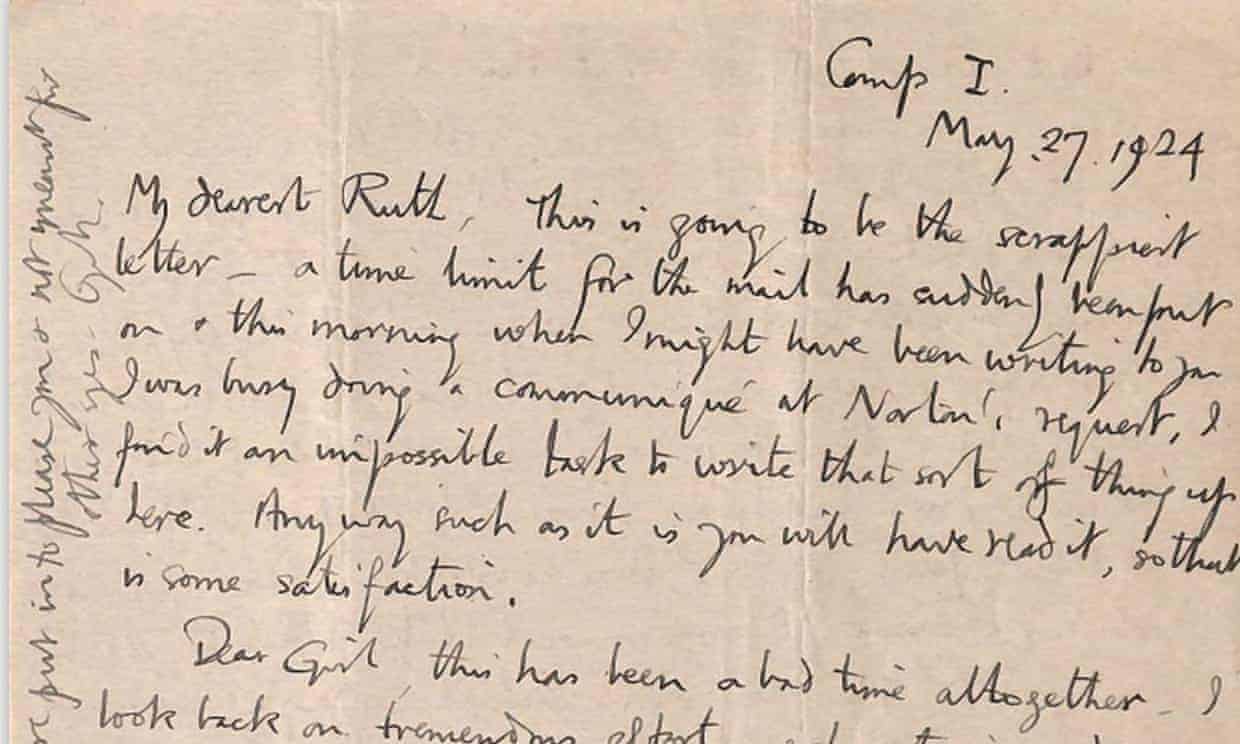 Camp I.
May. 27. 1924
My dearest Ruth, This is going to be the scrappiest
letter – a time limit for the mail has suddenly been put
on & this morning when I might have been writing to you
I was busy doing a communiqué at Norton's request, I
find it an impossible task to write that sort of thing up
here. Anyway such as it is you will have read it, so that
is some satisfaction.
Dear Girl, this has been a bad time altogether – I
look back on tremendous effort
put in to please you & not meant for
other eyes – G.M.